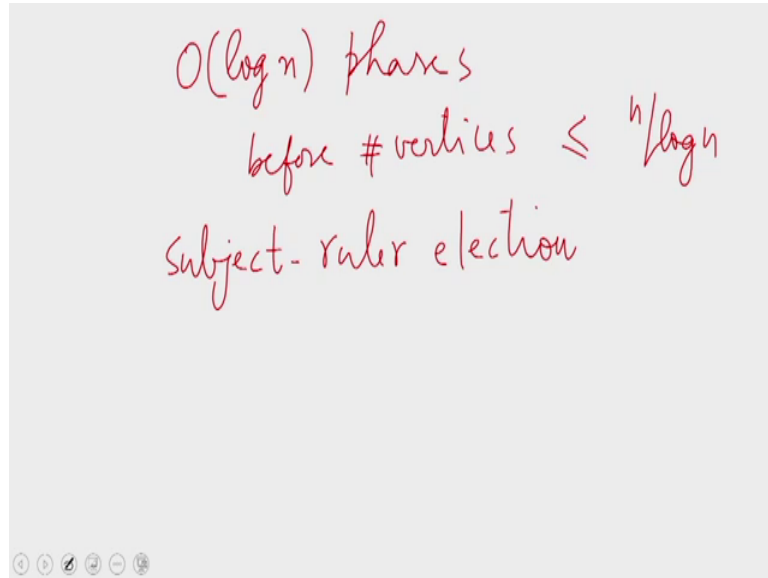 O(log n) phases
before #vertices ≤ n/log n
subject-ruler election